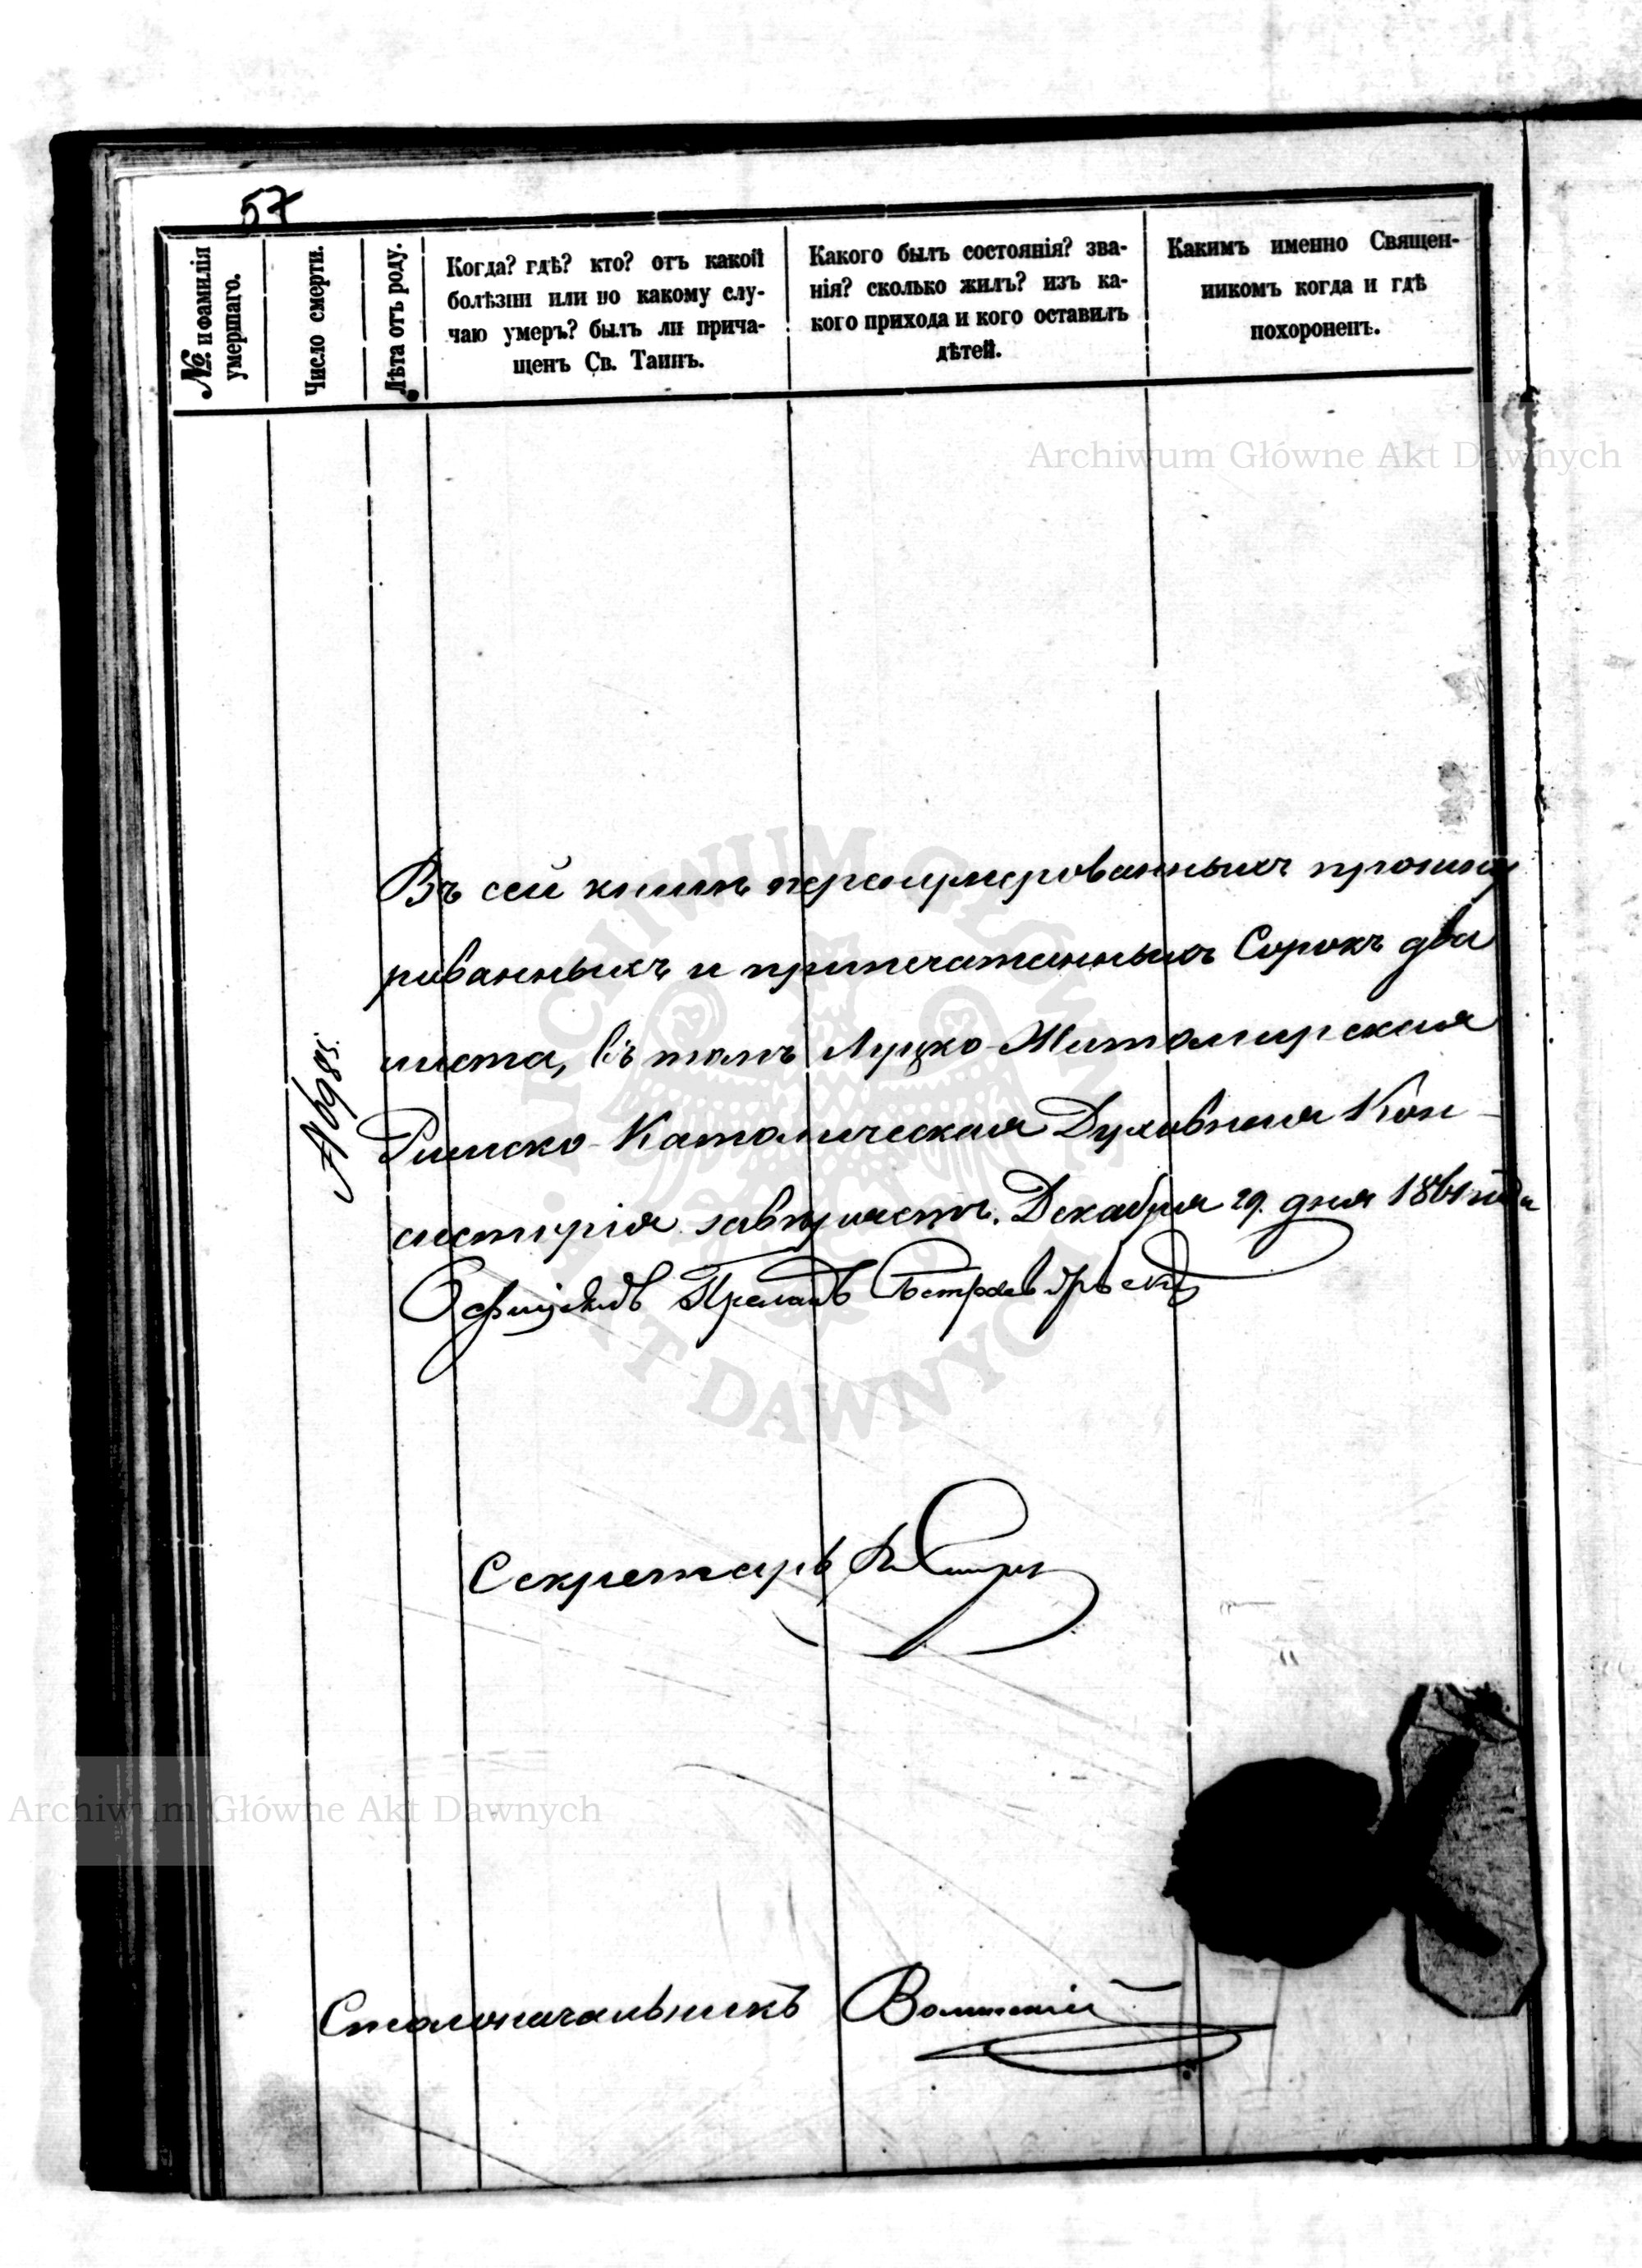 57
№ и фамилія
умершаго.
Число смерти.
Лѣта отъ роду.
Когда? гдѣ? кто? отъ какой
болѣзни или по какому слу-
чаю умеръ? былъ ли прича-
щенъ Св. Таинъ.
Какого былъ состоянія? зва-
нія? сколько жилъ? изъ ка-
кого прихода и кого оставилъ
дѣтей.
Какимъ именно Священ-
никомъ когда и гдѣ
похороненъ.
Archiwum Główne Akt Dawnych
Въ сей книгѣ перенумерованныхъ прошну
рованныхъ и припечатанныхъ Сорокъ два
листа, въ томъ Луцко-Житомирская
Римско-Католическая Духовная Кон-
систорія завѣряетъ. Декабря 29. дня 1861 года
Оффиціалъ Прелатъ
Секретарь
Столоначальникъ
Archiwum Główne Akt Dawnych
ARCHIWUM GŁÓWNE
AKT DAWNYCH